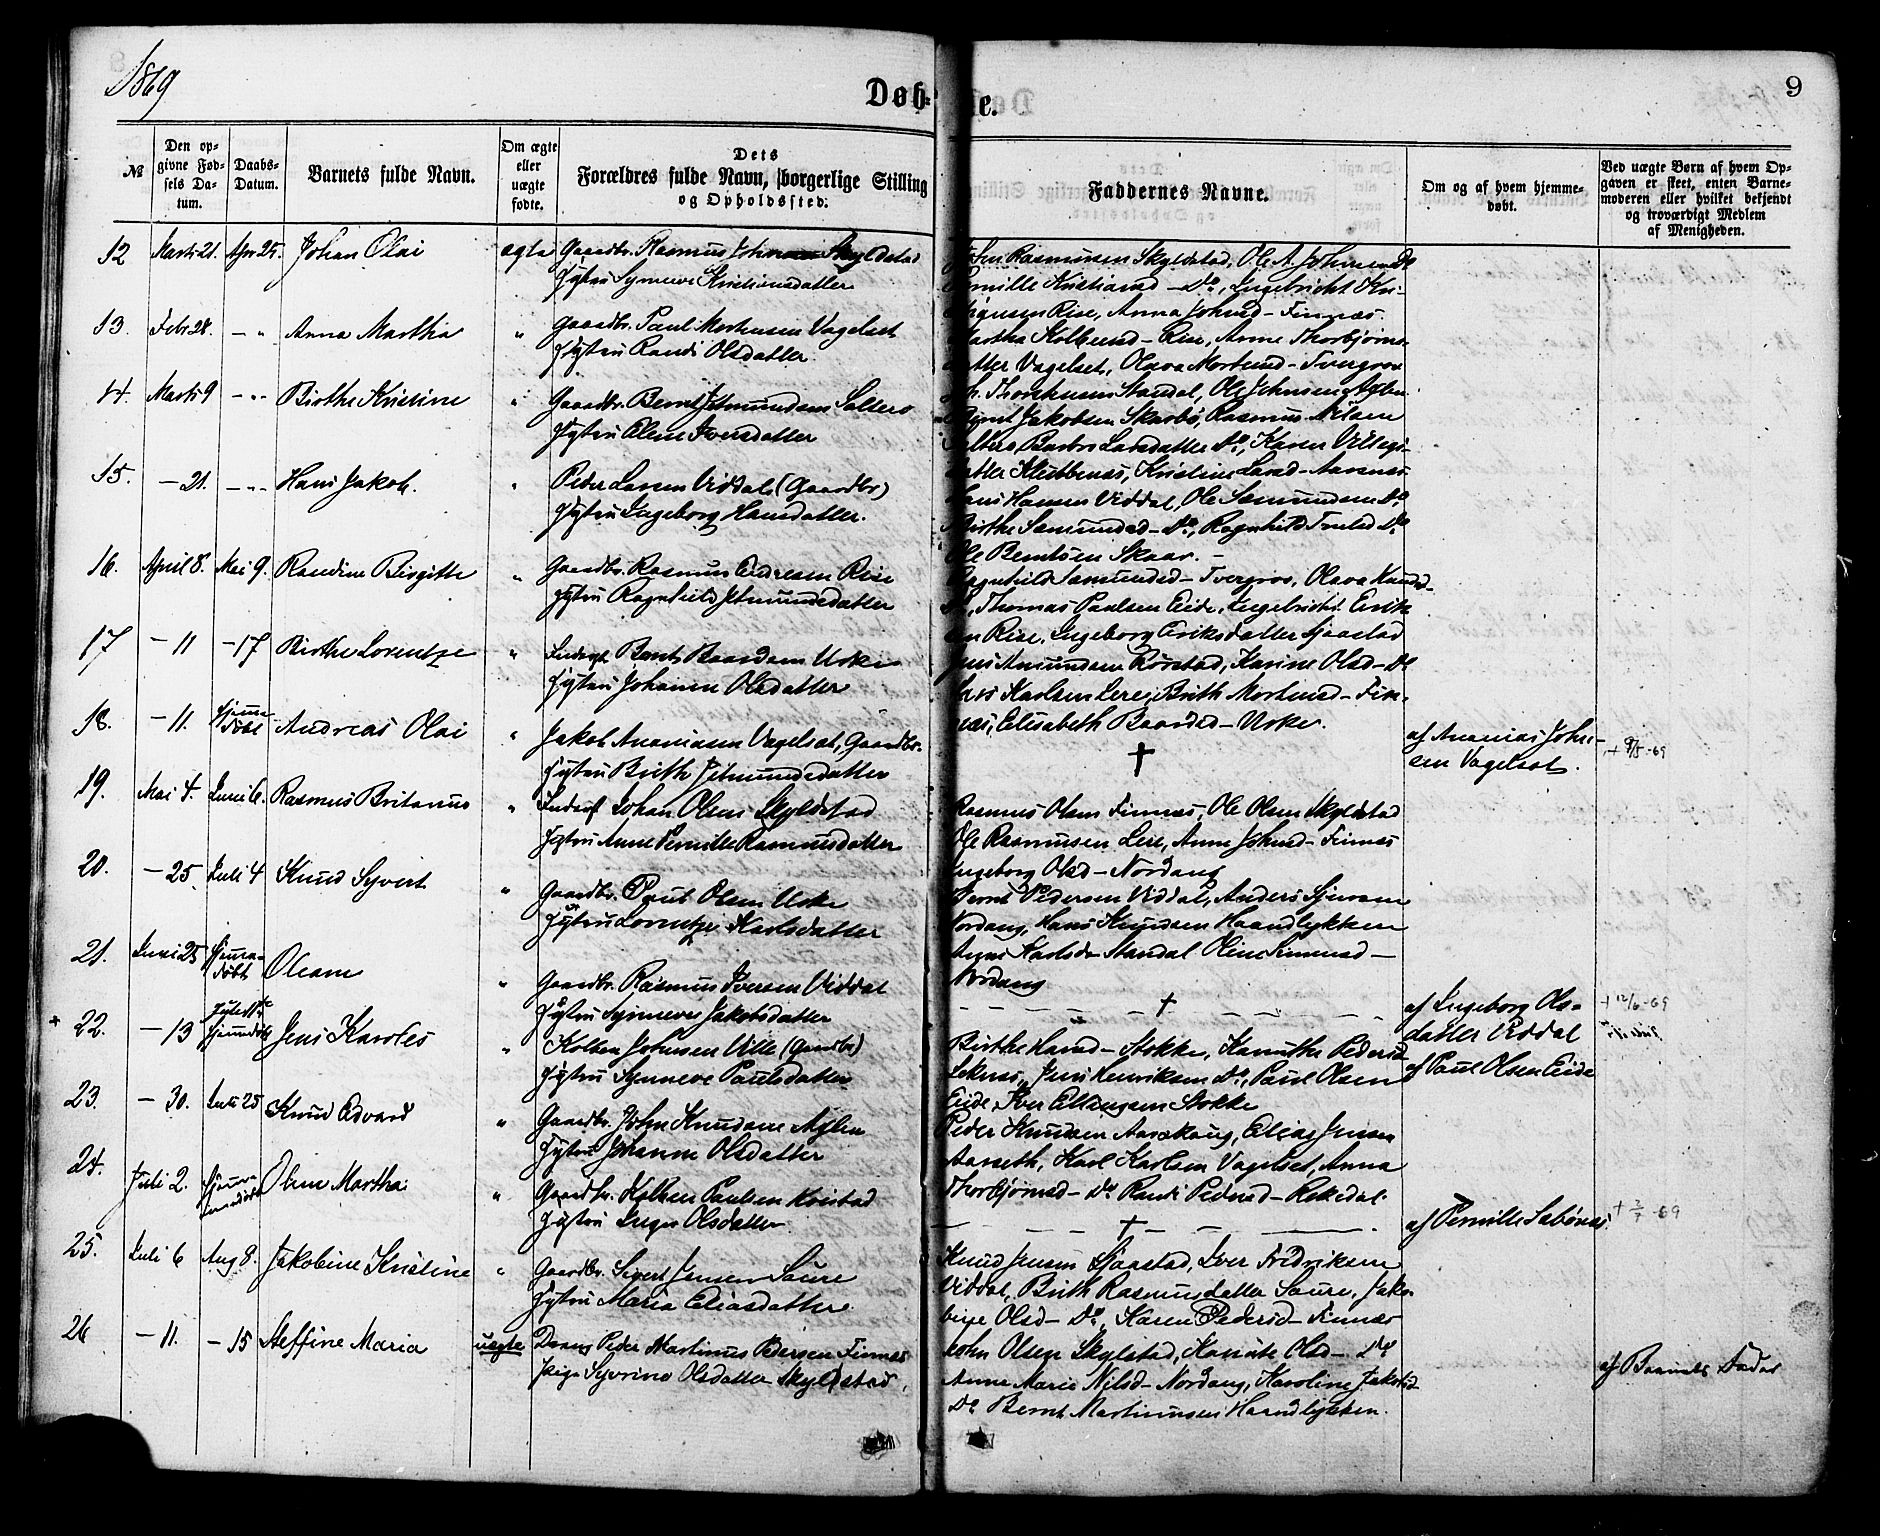 1869
Døb-
te.
9
№
Den op-
givne Fød-
sels Da-
tum.
Daabs-
Datum.
Barnets fulde Navn.
Om ægte
eller
uægte
fødte.
Dets
Forældres fulde Navn, borgerlige Stilling
og Opholdssted.
Faddernes Navne.
Om og af hvem hjemme-
døbt.
Ved uægte Børn af hvem Op-
gaven er skeet, enten Barne-
moderen eller hvilket bekjendt
og troværdigt Medlem
af Menigheden.
12 Marts 21. Apr. 25. Johan Olai ægte Gaardbr. Rasmus Skyldstad
Hustru Synneve Kristiansdatter
Rasmussen Skyldstad, Ole A. Johnsen Do
Pernille Kristiansd- Do, Ingebricht Kri-
13. Feb. 28. - " Anna Martha " Gaardbr. Paul Mortensen Vagelset
Hustru Randi Olsdatter.
Rise, Anna Johnsd- Finnæs.
Martha Kolbensd- Rise, Anne Thorbjørns-
datter Vagelset, Olava Mortensd- Tvergrov
14. Marts 9 - " Birthe Kristine " Gaardbr. Bernt Jetmundsen Sæbere
Hustru Oline Iversdatter
Standal, Ole Johnsen Aglen
Bernt Jakobsen Skarbø, Rasmus Nilsen
Larsdatter Do, Karen
datter Klubbenæs, Kristine Larsd- Aarsnæs
15. - 21. - " Hans Jakob. " Peder Larsen Viddal (Gaardbr)
Hustru Ingeborg Hansdatter.
Hans Hansen Viddal, Ole Samundsen Do
Birthe Samundsd- Do, Ragnhild Do
Ole Berntsen Skaar. -
16. April 8. Mai 9. Randine Birgitte " Gaardbr. Rasmus Andresen Rise
Hustru Ragnhild Jetmundsdatter
Ragnhild Samundsd- Tvergrov, Olava Knudsd-
Do, Thomas Paulsen Eide, Ingebricht Erik-
sen Rise, Ingeborg Eriksdatter Sjaastad
17 - 11 - 17 Birthe Lorentze " Inderst Bernt Baardsen Urke
Hustru Johanne Olsdatter
Jens Amundsen Rørstad, Karine Olsd- Do
Lars Karlsen Lere, Brith Mortensd- Fin-
næs, Elisabeth Baardsd- Urke.
18. - 11. Hjemme-
døbt Andreas Olai " Jakob Ananiasen Vagelset, Gaardbr.
Hustru Brith Jetmundsdatter
†
af Ananias John-
sen Vagelset.
+ 9/5-69
19. Mai 4. Juni 6. Rasmus Britanus " Inderst Johan Olsen Skyldstad
Hustru Anne Pernille Rasmusdatter
Rasmus Olsen Finnæs, Ole Olsen Skyldstad
Ole Rasmussen Lere, Anne Johnsd- Finnæs
Ingeborg Olsd- Nordang
20. - 25. Juli 4 Knud Syvert " Gaardbr. Paul Olsen Urke
Hustru Lorentze Karlsdatter
Bernt Pedersen Viddal, Anders Sjursen
Nordang, Hans Knudsen Haandlykken
Karlsdr Standal Oline
Nordang
21. Juni 25 Hjemme-
døbt Oleane " Gaardbr. Rasmus Iversen Viddal
Hustru Synneve Jakobsdatter
†
af Ingeborg Ols-
datter Viddal
+ 12/6-69
22. - 13 Jens Karoles " Kolben Johnsen Ville (Gaardbr)
Hustru Synneve Paulsdatter
Birthe Hansd- Stokke, Kanutha Pedersd
Leknæs, Jens Henriksen Do, Paul Olsen
Eide, Iver Ellingsen Stokke
af Paul Olsen Eide
23. - 30. Juli 25 Knud Edvard " Gaardbr. John Knudsen Aglen
Hustru Johanne Olsdatter
Peder Knudsen Aarskaug, Elias Jensen
Aarseth, Karl Karlsen Vagelset, Anna
Thorbjørnsd- Do Randi Pedersd- Rekedal.
24. Juli 2. Oline Martha " Gaardbr. Kolben Paulsen Kvistad
Hustru Inger Olsdatter
†
af Pernille Sæbønæs.
+ 2/7-69
25. Juli 6 Aug 8. Jakobine Kristine " Gaardbr. Sivert Jensen Saure
Hustru Maria Eliasdatter
Knud Jensen Sjaastad, Iver Fredriksen
Viddal, Brith Rasmusdatter Saure, Jako-
bine Olsd- Do, Karen Pedersd- Finnæs
26 - 11. - 15 Steffine Maria uægte Dreng Peder Martinus Pedersen Finnæs
Pige Syvrine Olsdatter Skyldstad,
John Olsen Skyldstad, Kanute Olsd- Do
Anne Marie Nilsd- Nordang, Karoline Jakobsd
Do Bernt Martinussen Haandlykken.
af Barnets Fader